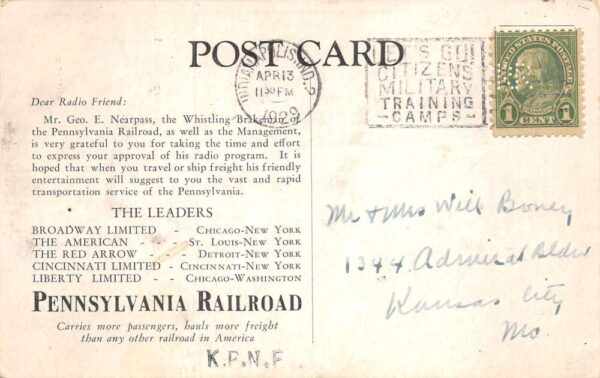 POST CARD
INDIANAPOLIS, IND. 2
APR 13
11 30 PM
1929
LET'S GO!
CITIZENS
MILITARY
TRAINING
-CAMPS-
UNITED STATES POSTAGE
FRANKLIN
1 1
CENT
Dear Radio Friend:
Mr. Geo. E. Nearpass, the Whistling Brakeman of
the Pennsylvania Railroad, as well as the Management,
is very grateful to you for taking the time and effort
to express your approval of his radio program. It is
hoped that when you travel or ship freight his friendly
entertainment will suggest to you the vast and rapid
transportation service of the Pennsylvania.
THE LEADERS
BROADWAY LIMITED - CHICAGO-NEW YORK
THE AMERICAN - - - ST. LOUIS-NEW YORK
THE RED ARROW - - DETROIT-NEW YORK
CINCINNATI LIMITED - CINCINNATI-NEW YORK
LIBERTY LIMITED - - CHICAGO-WASHINGTON
PENNSYLVANIA RAILROAD
Carries more passengers, hauls more freight
than any other railroad in America
K.F.N.F
Mr & Mrs Will Boney
1344 Admiral Bldv
Kansas City
Mo.